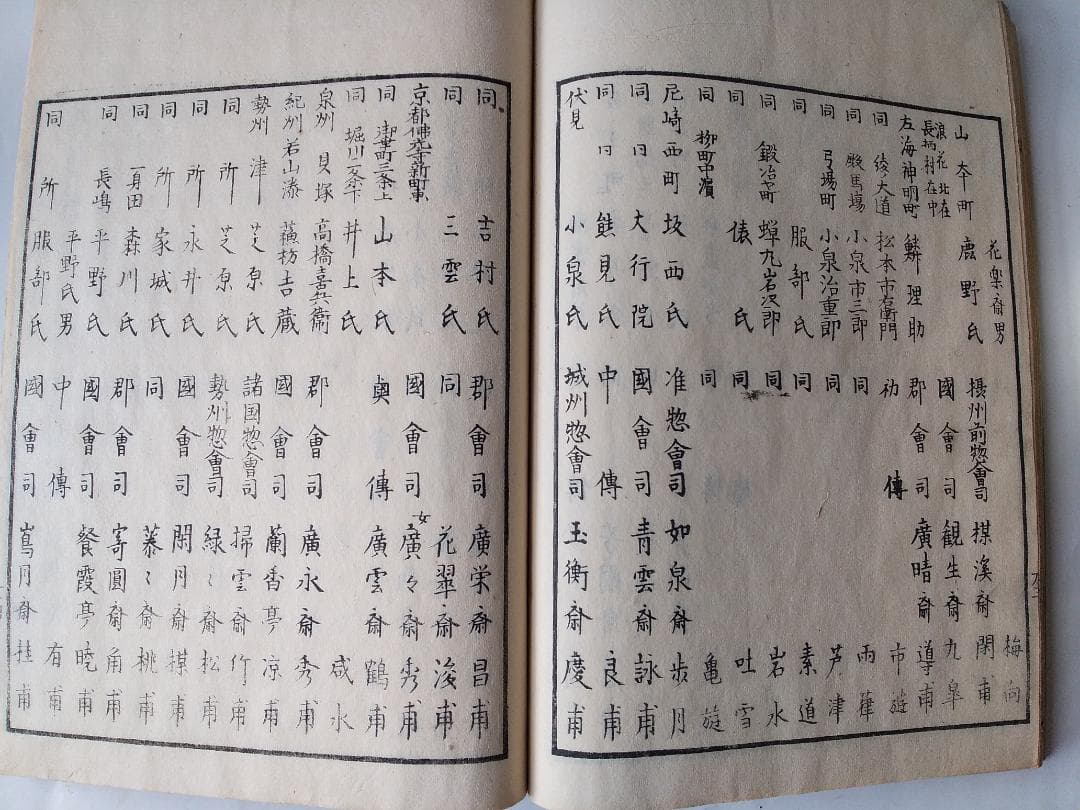 花楽斎男 梅向
山本町 鹿野氏 摂州前惣會司 楳溪斎閑甫
浪花北在長柄村在中 國會司 観生斎九皐
左海神明町 鱗理助 郡會司 廣晴斎導甫
同 綾大道 松本市右衛門 初傳 市遊
同 馬場 小泉市三郎 同 雨葎
同 弓場町 小泉治重郎 同 芦津
同 服部氏 同 素道
同 鍛冶町 蝉九岩次郎 同 岩水
同 俵氏 同 吐雪
同 柳町中濱 同 亀遊
尼崎西町 坂西氏 准惣會司 如泉斎歩月
同日 大行院 國會司 青雲斎詠甫
同日 熊見氏 中傳 良甫
伏見 小泉氏 城州惣會司 玉衡斎慶甫
同 吉村氏 郡會司 廣栄斎昌甫
同 三雲氏 同 花翠斎浚甫
京都佛光寺新町東 國會司 女 廣々斎秀甫
同 御幸町三条上 山本氏 奥傳 廣雲斎鶴甫
同 堀川一条下 井上氏 咸水
泉州 貝塚 高橋喜兵衞 郡會司 廣永斎秀甫
紀州若山湊 蘓枋吉蔵 國會司 蘭香亭凉甫
勢州 津 芝原氏 諸国惣會司 掃雲斎竹甫
同 所 芝原氏 勢州惣會司 緑々斎松甫
同 所 永井氏 國會司 閑月斎楳甫
同 所 家城氏 同 慕々斎桃甫
同 一身田 森川氏 郡會司 寄圓斎角甫
同 長嶋 平野氏 國會司 餐霞亭暁甫
平野氏男 中傳 有甫
同 所 服部氏 國會司 嶌月斎桂甫